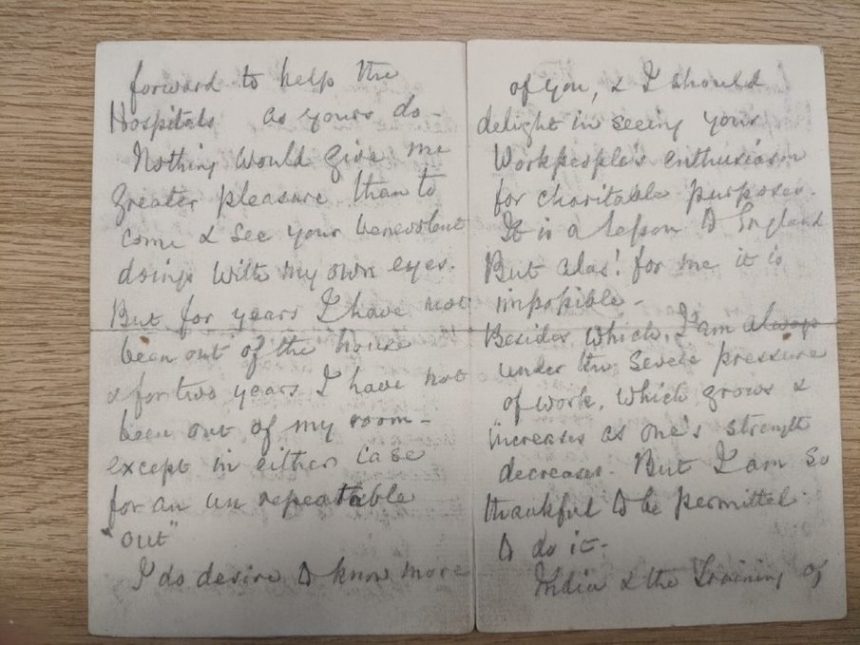 forward to help the
Hospitals as yours do -
Nothing would give me
greater pleasure than to
come & see your benevolent
doings with my own eyes.
But for years I have not
been out of the house
& for two years I have not
been out of my room -
except in either case
for an un repeatable
"out"
I do desire to know more
of you, & I should
delight in seeing your
Workpeople's enthusiasm
for charitable purposes.
It is a lesson to England
But alas! for me it is
impossible -
Besides which, I am always
under the severe pressure
of work, which grows &
increases as one's strength
decreases. But I am so
thankful to be permitted
to do it -
India & the Training of